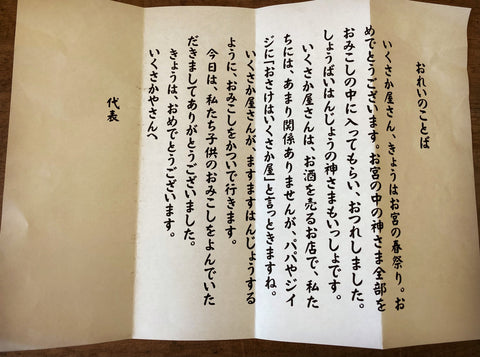 おれいのことば
いくさか屋さん、きょうはお宮の春祭り。お
めでとうございます。お宮の中の神さま全部を
おみこしの中に入ってもらい、おつれしました。
しょうばいはんじょうの神さまもいっしょです。
いくさか屋さんは、お酒を売るお店で、私た
ちには、あまり関係ありませんが、パパやジイ
ジに「おさけはいくさか屋」と言っときますね。
いくさか屋さんが、ますますはんじょうする
ように、おみこしをかついで行きます。
今日は、私たち子供のおみこしをよんでいた
だきましてありがとうございました。
きょうは、おめでとうございます。
いくさかやさんへ
代表